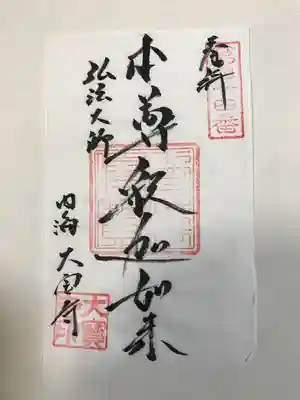 奉拝
本尊釈迦如来
弘法大師
内海 大宝寺
大寶寺